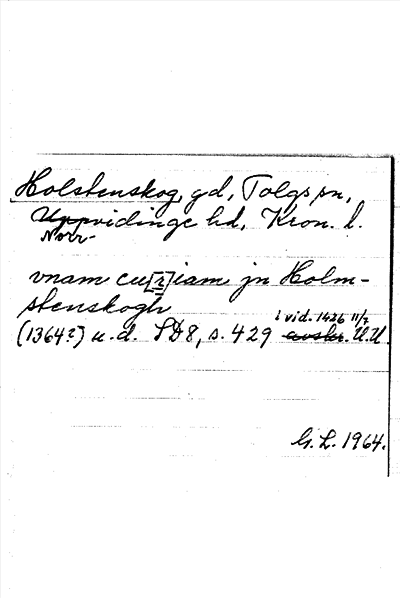 Holstenskog, gd, Tolgs sn,
Uppvidinge hd, Kron. l.
Norr-
vnam cu[r]iam jn Holm-
stenskogh
i vid. 1426 11/2
(1364?) u.d. SD8, s. 429 avskr. U.U.
G. L. 1964.